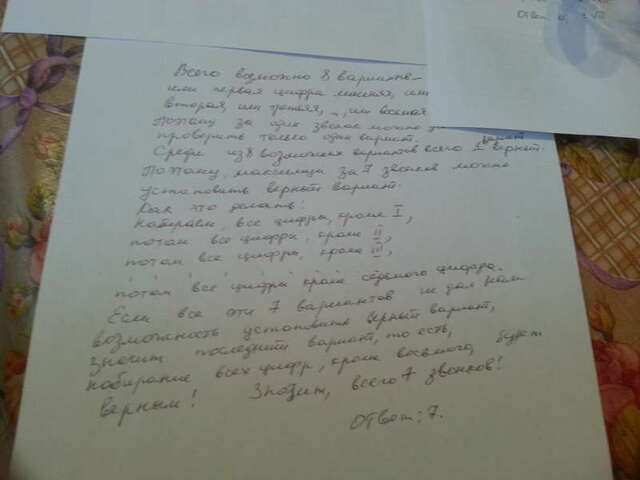 Ответ
Всего возможно 8 вариантов –
или первая цифра лишняя, или
вторая, или третья, ..., или восьмая
Поэтому за один звонок можно
проверить только один вариант.
Среди из 8 возможных вариантов всего 1 верный.
Поэтому, максимум за 7 звонков можно
установить верный вариант.
Как это делать:
Набираем, все цифры, кроме I,
потом все цифры, кроме II,
потом все цифры, кроме III,
потом все цифры кроме седьмого цифра.
Если все эти 7 вариантов не дал нам
возможность установить верный вариант,
значит последний вариант, то есть,
набирание всех цифр, кроме восьмого, будет
верным! Значит, всего 7 звонков!
Ответ: 7.